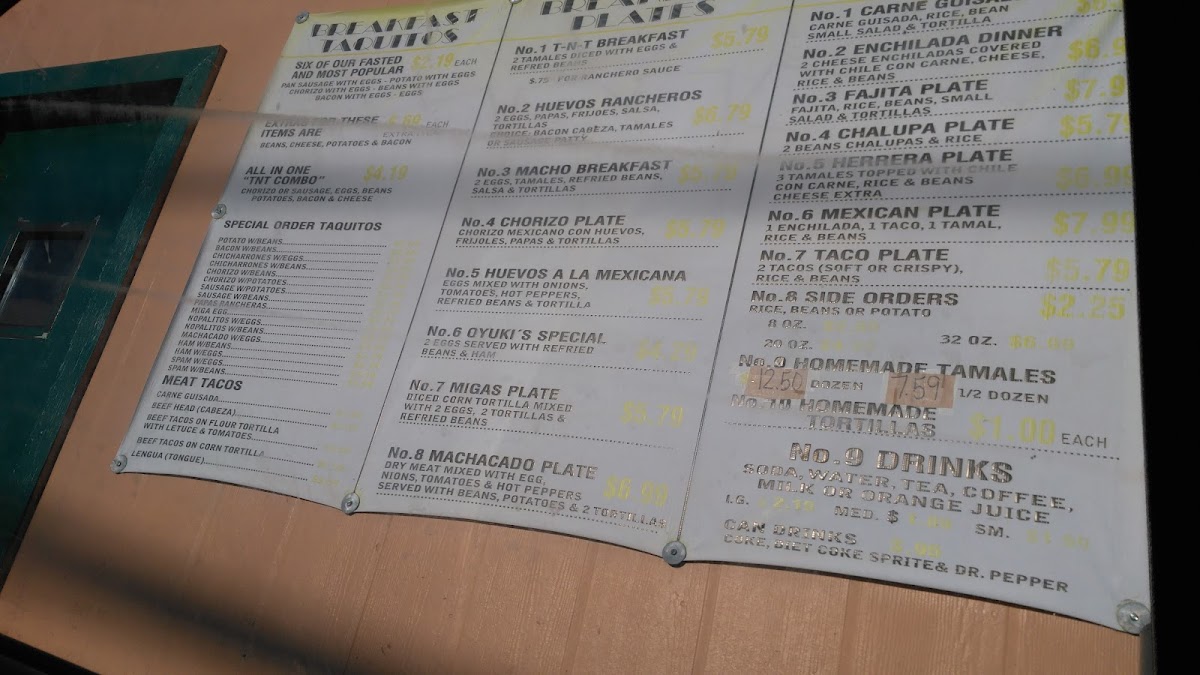 BREAKFAST
TAQUITOS
SIX OF OUR FASTED
AND MOST POPULAR
$2.19 EACH
PAN SAUSAGE WITH EGGS - POTATO WITH EGGS
CHORIZO WITH EGGS - BEANS WITH EGGS
BACON WITH EGGS - EGGS
EXTRAS FOR THESE
ITEMS ARE
EACH
BEANS, CHEESE, POTATOES & BACON
ALL IN ONE
"TNT COMBO"
$4.19
CHORIZO OR SAUSAGE, EGGS, BEANS
POTATOES, BACON & CHEESE
SPECIAL ORDER TAQUITOS
POTATO W/BEANS
BACON W/BEANS
CHICHARRONES W/EGGS
CHICHARRONES W/BEANS
CHORIZO W/BEANS
CHORIZO W/POTATOES
SAUSAGE W/POTATOES
SAUSAGE W/BEANS
PAPAS RANCHERAS
MIGA EGG
NOPALITOS W/EGGS
NOPALITOS W/BEANS
MACHACADO W/EGGS
HAM W/BEANS
HAM W/EGGS
SPAM W/EGGS
SPAM W/BEANS
MEAT TACOS
CARNE GUISADA
BEEF HEAD (CABEZA)
BEEF TACOS ON FLOUR TORTILLA
WITH LETUCE & TOMATOES
BEEF TACOS ON CORN TORTILLA
LENGUA (TONGUE)
BREAKFAST
PLATES
No.1 T-N-T BREAKFAST
$5.79
2 TAMALES DICED WITH EGGS &
REFRED BEANS
$.75 FOR RANCHERO SAUCE
No.2 HUEVOS RANCHEROS
$6.79
2 EGGS, PAPAS, FRIJOES, SALSA,
TORTILLAS
CHOICE, BACON CABEZA, TAMALES
OR SAUSAGE PATTY
No.3 MACHO BREAKFAST
$5.79
2 EGGS, TAMALES, REFRIED BEANS,
SALSA & TORTILLAS
No.4 CHORIZO PLATE
$5.79
CHORIZO MEXICANO CON HUEVOS,
FRIJOLES, PAPAS & TORTILLAS
No.5 HUEVOS A LA MEXICANA
$5.79
EGGS MIXED WITH ONIONS,
TOMATOES, HOT PEPPERS,
REFRIED BEANS & TORTILLA
No.6 OYUKI´S SPECIAL
$4.79
2 EGGS SERVED WITH REFRIED
BEANS & HAM
No.7 MIGAS PLATE
$5.79
DICED CORN TORTILLA MIXED
WITH 2 EGGS, 2 TORTILLAS &
REFRIED BEANS
No.8 MACHACADO PLATE
$6.99
DRY MEAT MIXED WITH EGG,
NIONS, TOMATOES & HOT PEPPERS
SERVED WITH BEANS, POTATOES & 2 TORTILLAS
No.1 CARNE GUISADA
CARNE GUISADA, RICE, BEAN
SMALL SALAD & TORTILLA
No.2 ENCHILADA DINNER
$6.9
2 CHEESE ENCHILADAS COVERED
WITH CHILE CON CARNE, CHEESE,
RICE & BEANS
No.3 FAJITA PLATE
$7.9
FAJITA, RICE, BEANS, SMALL
SALAD & TORTILLAS
No.4 CHALUPA PLATE
$5.79
2 BEANS CHALUPAS & RICE
No.5 HERRERA PLATE
$6.99
3 TAMALES TOPPED WITH CHILE
CON CARNE, RICE & BEANS
CHEESE EXTRA
No.6 MEXICAN PLATE
$7.99
1 ENCHILADA, 1 TACO, 1 TAMAL,
RICE & BEANS
No.7 TACO PLATE
$5.79
2 TACOS (SOFT OR CRISPY),
RICE & BEANS
No.8 SIDE ORDERS
$2.25
RICE, BEANS OR POTATO
8 OZ.
20 OZ.
32 OZ. $6.99
No.9 HOMEMADE TAMALES
12.50 DOZEN 7.59 1/2 DOZEN
No.10 HOMEMADE
TORTILLAS
$1.00 EACH
No.9 DRINKS
SODA, WATER, TEA, COFFEE,
MILK OR ORANGE JUICE
LG. MED. $ SM.
CAN DRINKS
COKE, DIET COKE SPRITE & DR. PEPPER